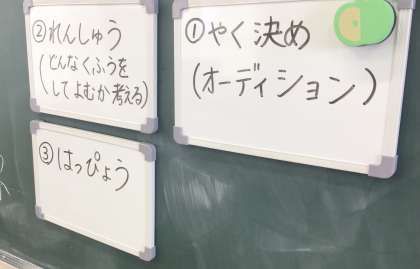 ①やく決め
(オーディション)
②れんしゅう
(どんなくふうを
してよむか考える)
③はっぴょう